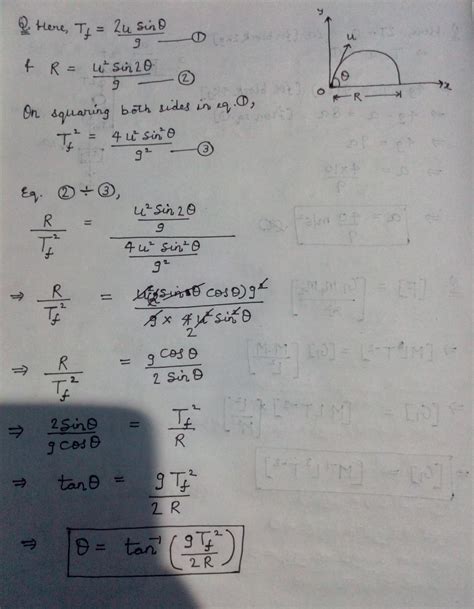 Q. Here, T_f = 2u sinθ / g — ①
& R = u² sin2θ / g — ②
On squaring both sides in eq. ①,
T_f² = 4u² sin²θ / g² — ③
Eq. ② ÷ ③,
R / T_f² = (u² sin2θ / g) / (4u² sin²θ / g²)
⇒ R / T_f² = u²(2 sinθ cosθ) g² / (g × 4 u² sin²θ)
2
⇒ R / T_f² = g cosθ / 2 sinθ
⇒ 2 sinθ / g cosθ = T_f² / R
⇒ tanθ = g T_f² / 2R
⇒ θ = tan⁻¹ (g T_f² / 2R)
y
u
θ
O
R
x